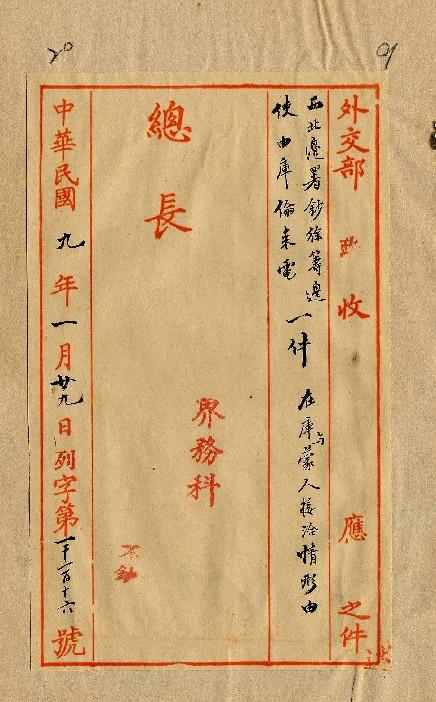 外交部 收 應 之件
西北邊署鈔徐籌邊
使由庫倫來電 一件 在庫與蒙人接洽情形由
總長
界務科
中華民國九年一月廿九日列字第一千一百十六號